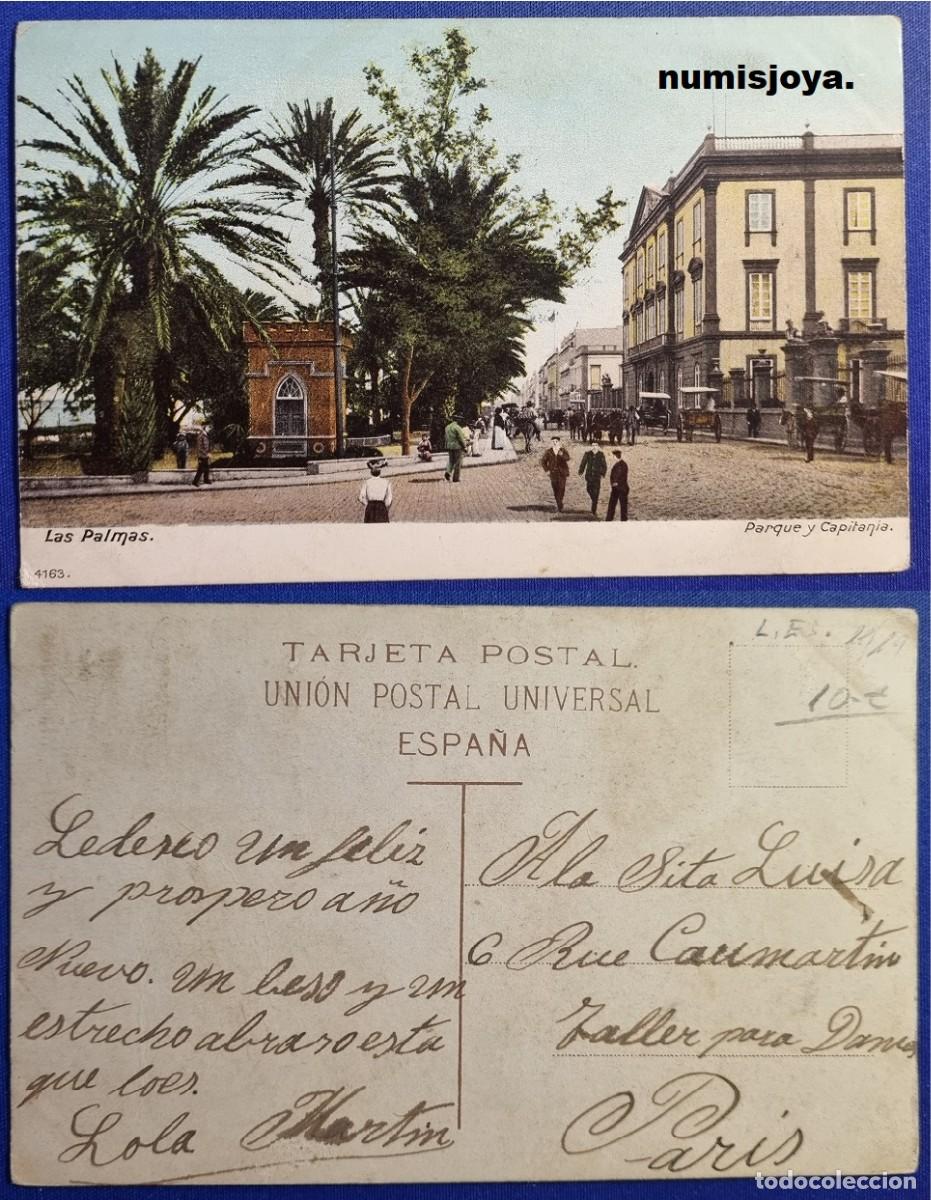 numisjoya.
Las Palmas.
Parque y Capitania.
4163.
L.ES.
TARJETA POSTAL.
UNIÓN POSTAL UNIVERSAL
ESPAÑA
10-€
Ledeseo un feliz
y prospero año
Nuevo. un beso y un
estrecho abraso esta
que loes.
Lola Martin
Ala Sita Luisa
6 Rue Caumartin
Taller para Damas
Paris
todocoleccion